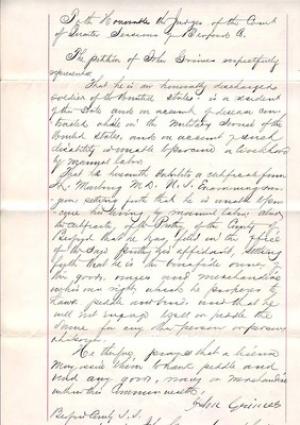 To the Honorable the Judges of the Court
of Quarter Sessions of Bedford Co.
The petition of John Grimes respectfully
represents
That he is an honorably discharged
soldier of the United States, is a resident
of the State and on account of disease con
tracted while in the military service of the
United States, and on account of such
disability is unable to procure a livelihood
by manual labor.
That he herewith submits a certificate from
M.D. U.S. Examining Sur-
geon setting forth that he is unable to pro-
cure his living by manual labor. Also
the certificate of the Prothy of the County of
Bedford that he has filed in the office
of the said Prothy his affidavit setting
forth that he is the bona fide owner of
the goods, wares and merchandise
in his own right, which he proposes to
hawk peddle and vend and that he
will not engage to sell or peddle the
same for any other person or persons
whatsoever.
He therefore prays that a license
may issue to him to hawk peddle and
vend any goods, wares or merchandise
within this Commonwealth.
John Grimes
Bedford County S.S.